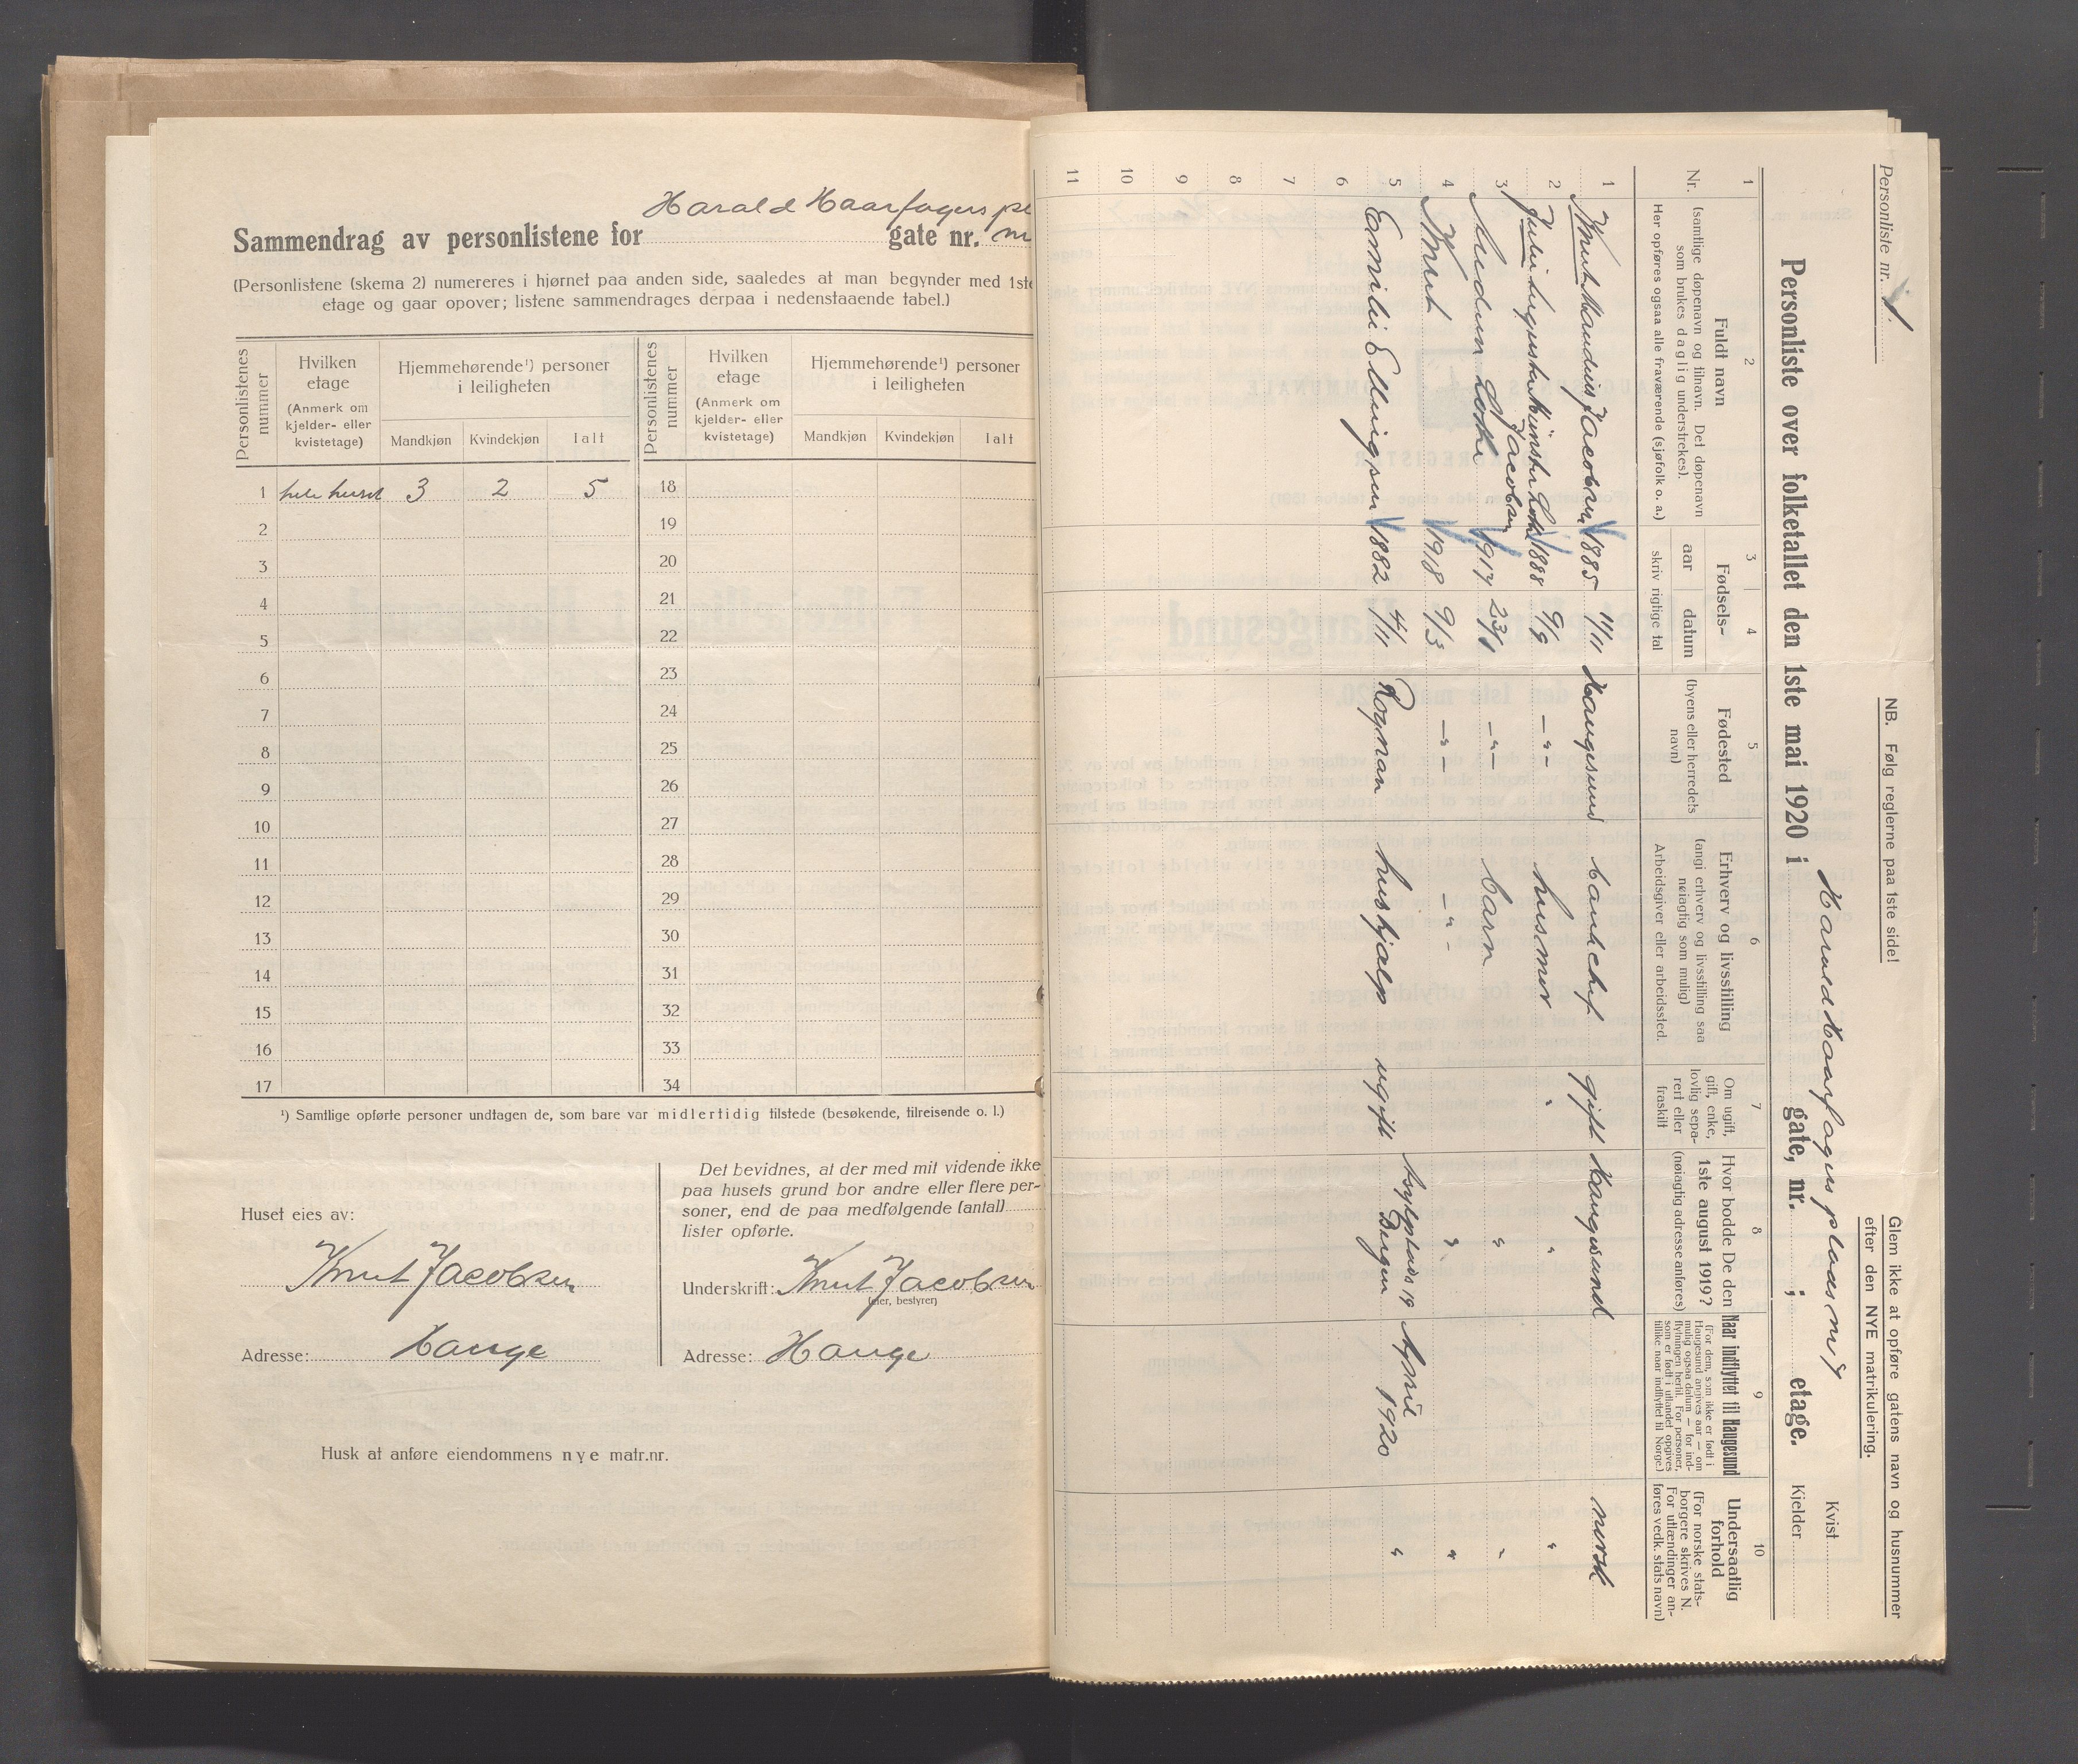 Harald Haarfagers pl
Sammendrag av personlistene for gate nr.
(Personlistene (skema 2) numereres i hjørnet paa anden side, saaledes at man begynder med 1ste
etage og gaar opover; listene sammendrages derpaa i nedenstaaende tabel.)
Personlistenes nummer
Hvilken etage
(Anmerk om kjelder- eller kvistetage)
Hjemmehørende¹) personer i leiligheten
Mandkjøn Kvindekjøn Ialt
Personlistenes nummer
Hvilken etage
(Anmerk om kjelder- eller kvistetage)
Hjemmehørende¹) personer i leiligheten
Mandkjøn Kvindekjøn Ialt
1 hele huset 3 2 5 18
2 19
3 20
4 21
5 22
6 23
7 24
8 25
9 26
10 27
11 28
12 29
13 30
14 31
15 32
16 33
17 34
¹) Samtlige opførte personer undtagen de, som bare var midlertidig tilstede (besøkende, tilreisende o. l.)
Huset eies av:
Knut Jacobsen
Adresse: Hauge
Det bevidnes, at der med mit vidende ikke
paa husets grund bor andre eller flere per-
soner, end de paa medfølgende (antal)
lister opførte.
Underskrift: Knut Jacobsen
(eier, bestyrer)
Adresse: Hauge
Husk at anføre eiendommens nye matr.nr.
Personliste nr. 1.
NB. Følg reglerne paa 1ste side!
Glem ikke at opføre gatens navn og husnummer
efter den NYE matrikulering.
Personliste over folketallet den 1ste mai 1920 i Harald Haarfagers plads gate, nr. ; etage.
Kvist
Kjelder
1 2 3 4 5 6 7 8 9 10
Nr.
Fuldt navn
(samtlige døpenavn og tilnavn. Det døpenavn
som brukes daglig understrekes).
Her opføres ogsaa alle fraværende (sjøfolk o. a.)
Fødsels-
aar datum
skriv rigtige tal
Fødested
(byens eller herredets
navn)
Erhverv og livsstilling
(angi erhverv og livsstilling saa
nøiagtig som mulig)
Arbeidsgiver eller arbeidssted.
Om ugift,
gift, enke,
lovlig sepa-
rert eller
fraskilt
Hvor bodde De den
1ste august 1919?
(nøiagtig adresse anføres)
Naar indflyttet til Haugesund
(For dem, som ikke er født i
Haugesund angives aar — om
mulig ogsaa datum — for ind-
flytningen hertil. For personer,
som er født i utlandet opgives
tillike naar indflyttet til Norge.)
Undersaatlig
forhold
(For norske stats-
borgere skrives N.
For utlændinger an-
føres vedk. stats navn)
1 Knut Jacobsen 1885 11/11 Haugesund bankchef gift Haugesund norsk
2 Julie Jacobsen 1888 9/9 — " — husmor " " "
3 Audun Lothe 1917 23/1 — " — barn " "
4 Knut 1918 9/3 — " — — " — " "
5 Emilie Ellingsen 1882 4/11 Rognan hushjælp ugift Asylplads 19 Bergen April 1920 "
6
7
8
9
10
11